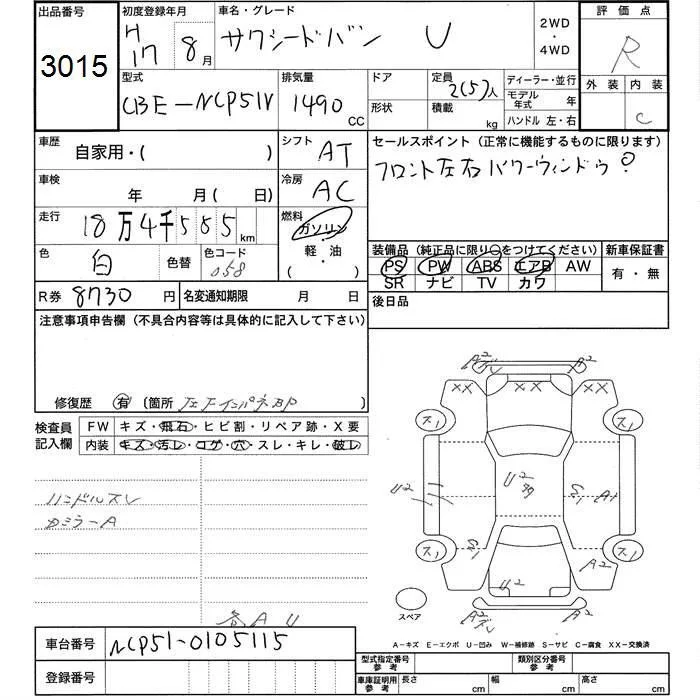 出品番号 初度登録年月 車名・グレード 2WD・4WD 評価点
3015 H17 8月 サクシードバン U R
外装 内装
C
型式 排気量 ドア 定員 2(5)人 ディーラー・並行
CBE-NCP51V 1490 CC 形状 積載 kg モデル年式 年
ハンドル 左・右
車歴 自家用・( ) シフト AT セールスポイント (正常に機能するものに限ります)
フロント左右パワーウィンドウ
車検 年 月 ( 日) 冷房 AC
走行 18万4千585km 燃料 ガソリン・軽油 ( )
色 白 色替 色コード 058
装備品 (純正品に限り○をつけてください) 新車保証書
PS PW ABS エアB AW 有・無
SR ナビ TV カワ
R券 8730円 名変通知期限 月 日 後日品
注意事項申告欄 (不具合内容等は具体的に記入して下さい)
修復歴 有 (箇所 左Fインパネ部P )
検査員記入欄 FW キズ・飛石・ヒビ割・リペア跡・X要
内装 キズ・汚レ・コゲ・穴・スレ・キレ・破レ
A2 A2
XX XX
ス1 ス1
ハンドルスレ
U2 U2 S1 A1
ス1 S1 ス1
A2
U2
スペア A2 A2
各AU
車台番号 NCP51-0105115
A-キズ E-エクボ U-凹み W-補修跡 S-サビ C-腐食 XX-交換済
登録番号
型式指定番号参考 類別区分番号参考
車庫証明用参考 長さ cm 幅 cm 高さ cm